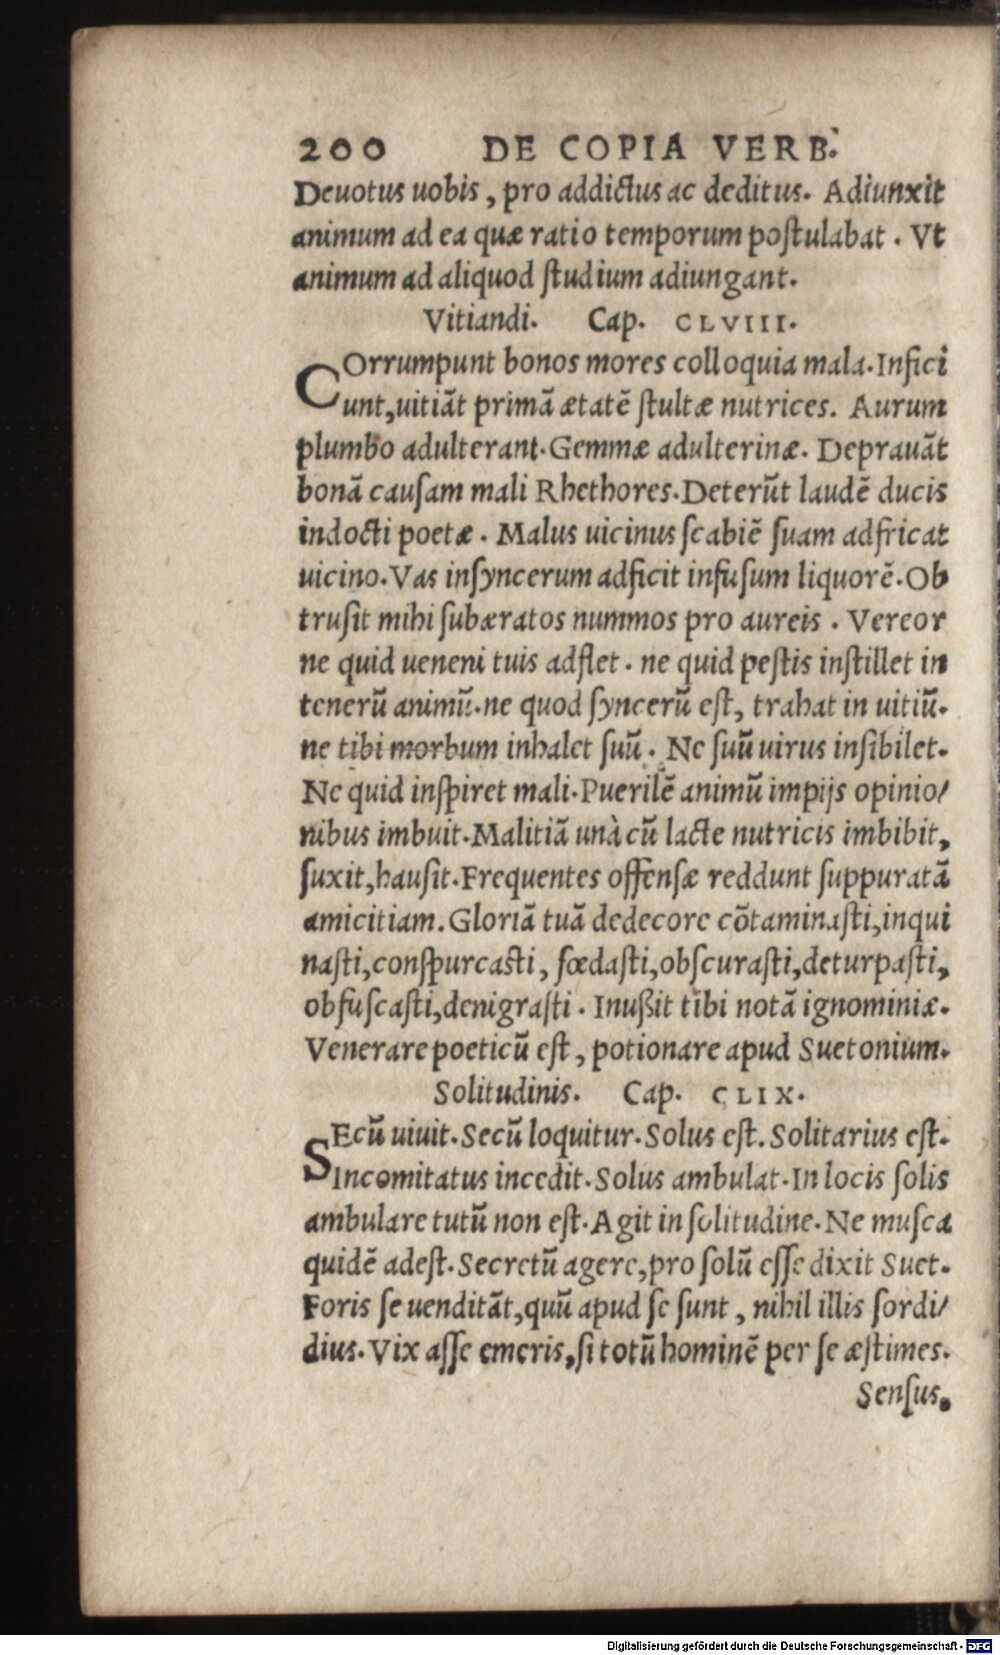 200 DE COPIA VERB.
Deuotus uobis, pro addictus ac deditus. Adiunxit
animum ad ea quæ ratio temporum poſtulabat. Vt
animum ad aliquod ſtudium adiungant.
Vitiandi. Cap. CLVIII.
COrrumpunt bonos mores colloquia mala. Infici
unt, uitiãt primã ætatẽ ſtultæ nutrices. Aurum
plumbo adulterant. Gemmæ adulterinæ. Deprauãt
bonã cauſam mali Rhethores. Deterũt laudẽ ducis
indocti poetæ. Malus uicinus ſcabiẽ ſuam adfricat
uicino. Vas inſyncerum adficit infuſum liquorẽ. Ob
truſit mihi ſubæratos nummos pro aureis. Vereor
ne quid ueneni tuis adflet. ne quid peſtis inſtillet in
tenerũ animũ. ne quod ſyncerũ eſt, trahat in uitiũ.
ne tibi morbum inhalet ſuũ. Ne ſuũ uirus inſibilet.
Ne quid inſpiret mali. Puerilẽ animũ impijs opinio/
nibus imbuit. Malitiã unà cũ lacte nutricis imbibit,
ſuxit, hauſit. Frequentes offenſæ reddunt ſuppuratã
amicitiam. Gloriã tuã dedecore cõtaminaſti, inqui
naſti, conſpurcaſti, fœdaſti, obſcuraſti, deturpaſti,
obfuſcaſti, denigraſti. Inußit tibi notã ignominiæ.
Venerare poeticũ eſt, potionare apud Suetonium.
Solitudinis. Cap. CLIX.
SEcũ uiuit. Secũ loquitur. Solus eſt. Solitarius eſt.
Incomitatus incedit. Solus ambulat. In locis ſolis
ambulare tutũ non eſt. Agit in ſolitudine. Ne muſca
quidẽ adeſt. Secretũ agere, pro ſolũ eſſe dixit Suet.
Foris ſe uenditãt, quũ apud ſe ſunt, nihil illis ſordi/
dius. Vix aſſe emeris, ſi totũ hominẽ per ſe æſtimes.
Senſus.
Digitalisierung gefördert durch die Deutsche Forschungsgemeinschaft - DFG